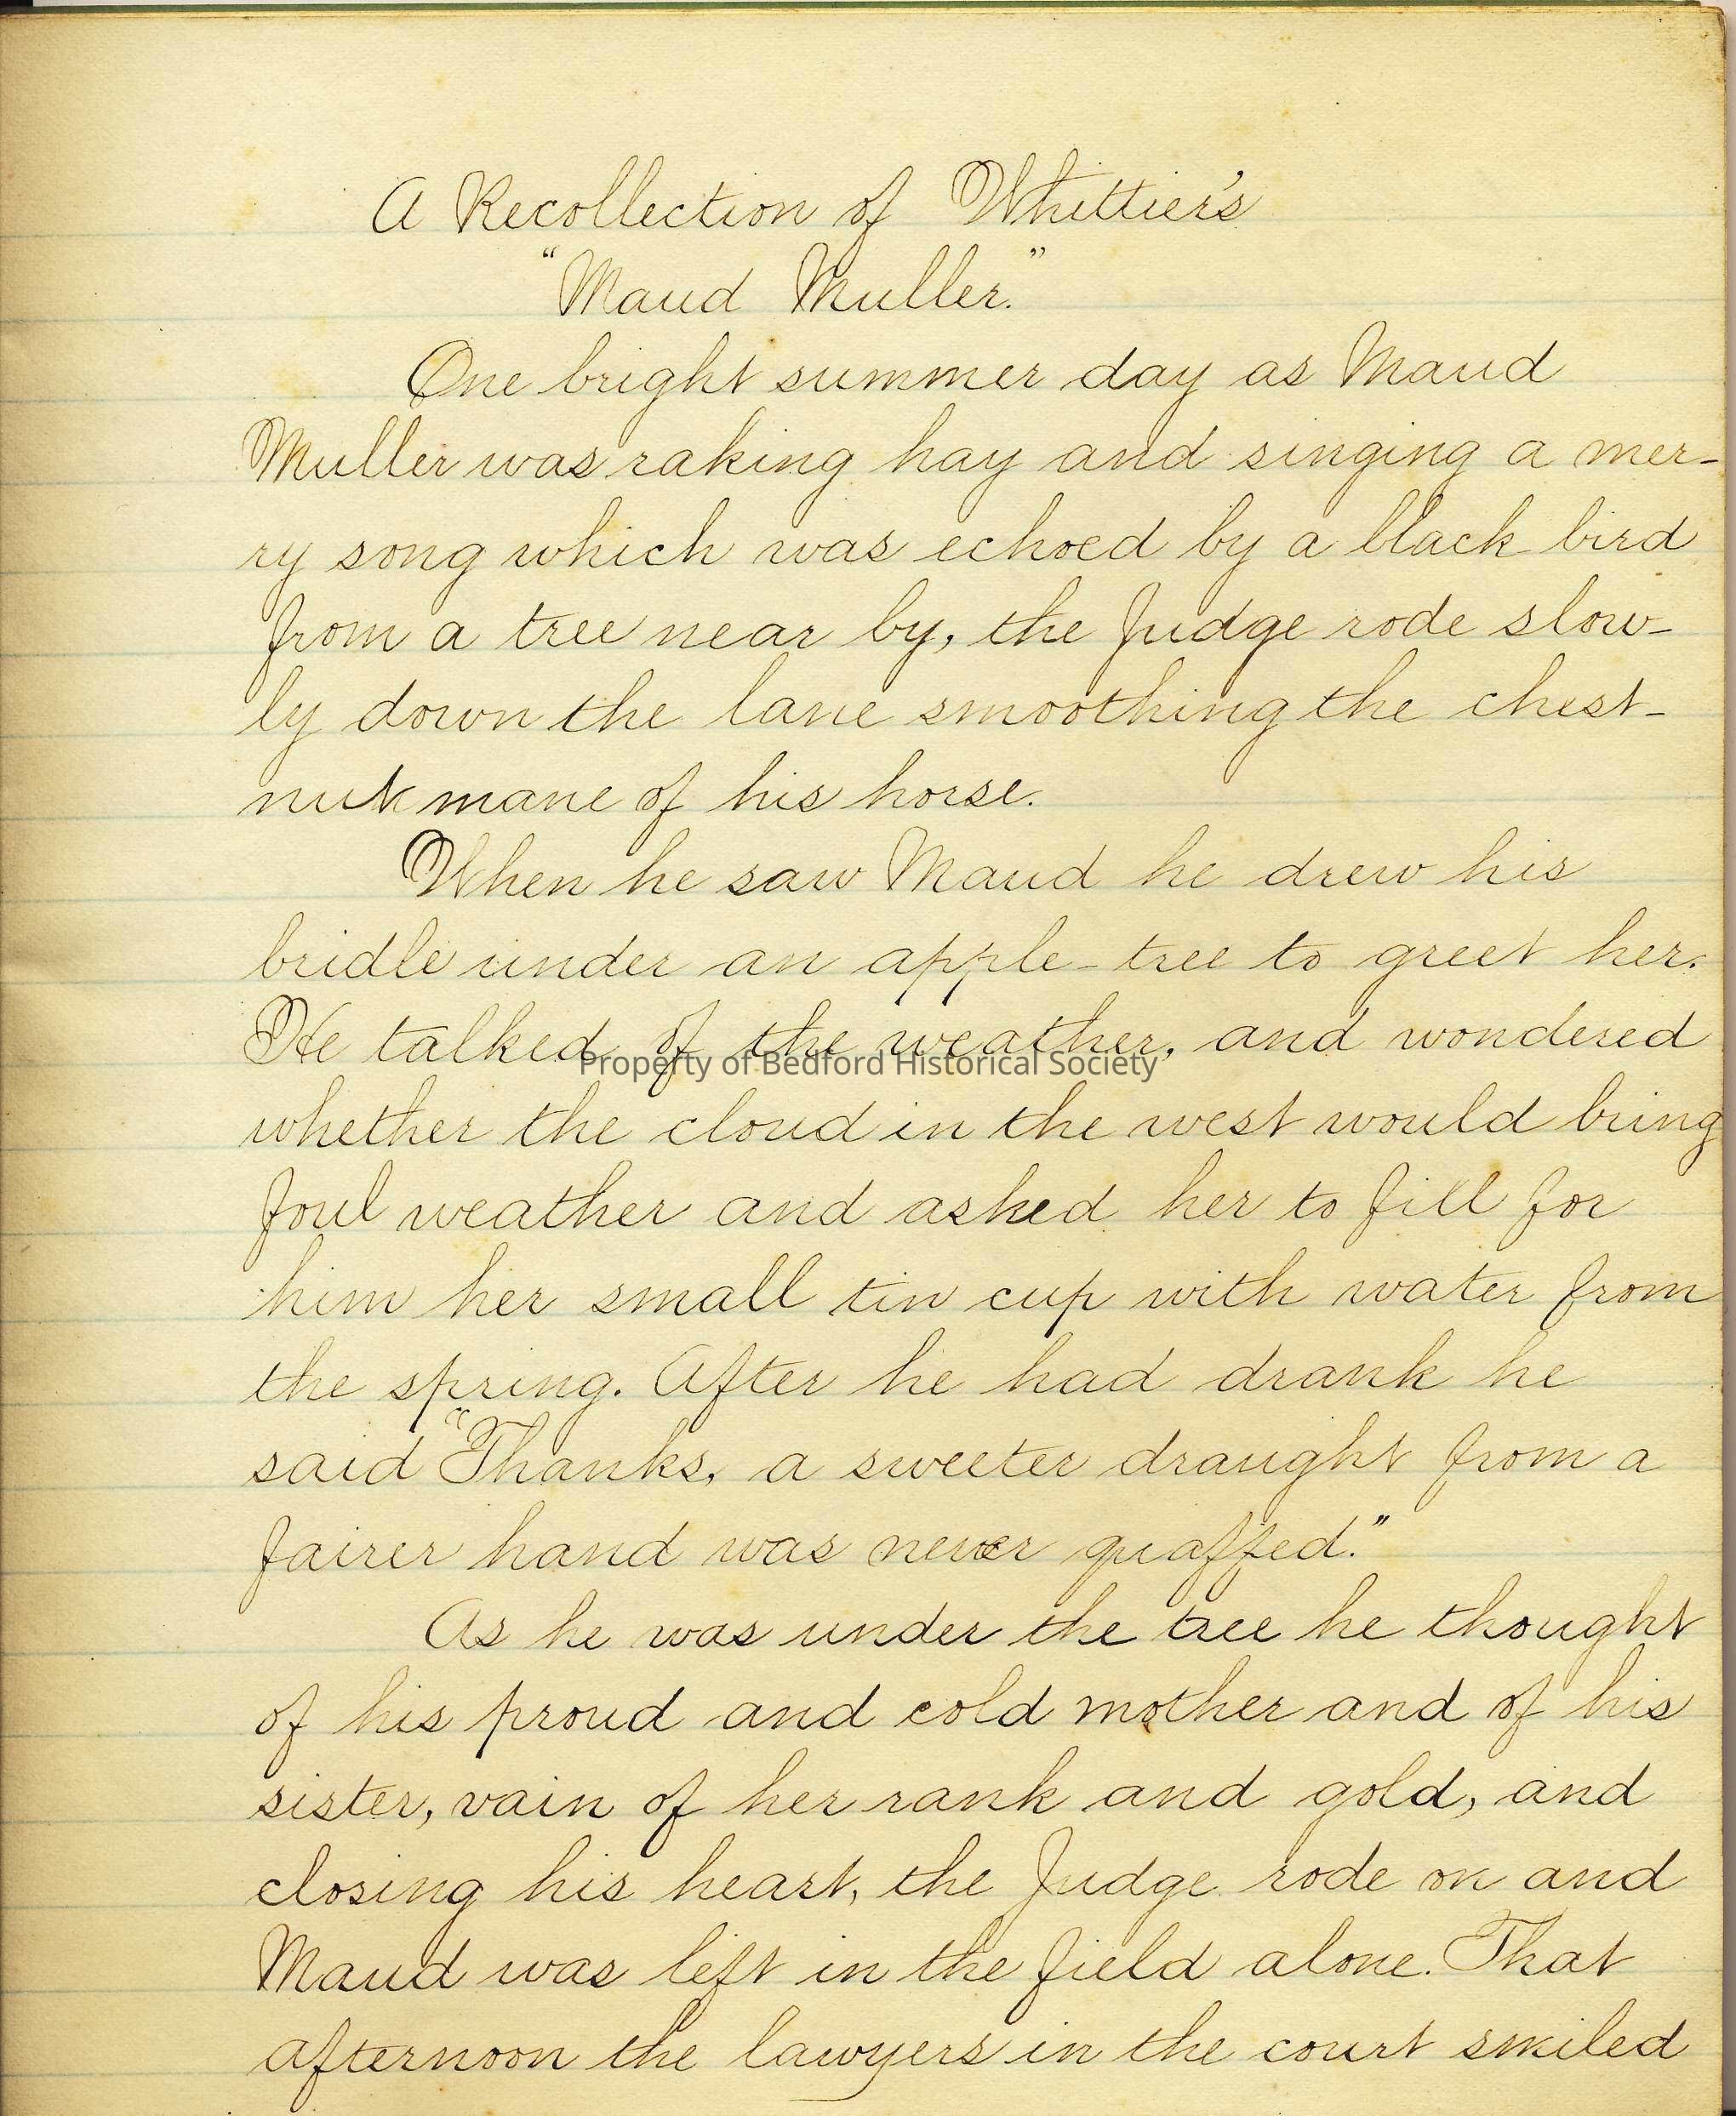 A Recollection of Whittier's
"Maud Muller."
One bright summer day as Maud
Muller was raking hay and singing a mer-
ry song which was echoed by a black bird
from a tree near by, the Judge rode slow-
ly down the lane smoothing the chest-
nut mane of his horse.
When he saw Maud he drew his
bridle under an apple-tree to greet her.
He talked of the weather, and wondered
Property of Bedford Historical Society
whether the cloud in the west would bring
foul weather and asked her to fill for
him her small tin cup with water from
the spring. After he had drank he
said "Thanks, a sweeter draught from a
fairer hand was never quaffed."
As he was under the tree he thought
of his proud and cold mother and of his
sister, vain of her rank and gold, and
closing his heart, the Judge rode on and
Maud was left in the field alone. That
afternoon the lawyers in the court smiled